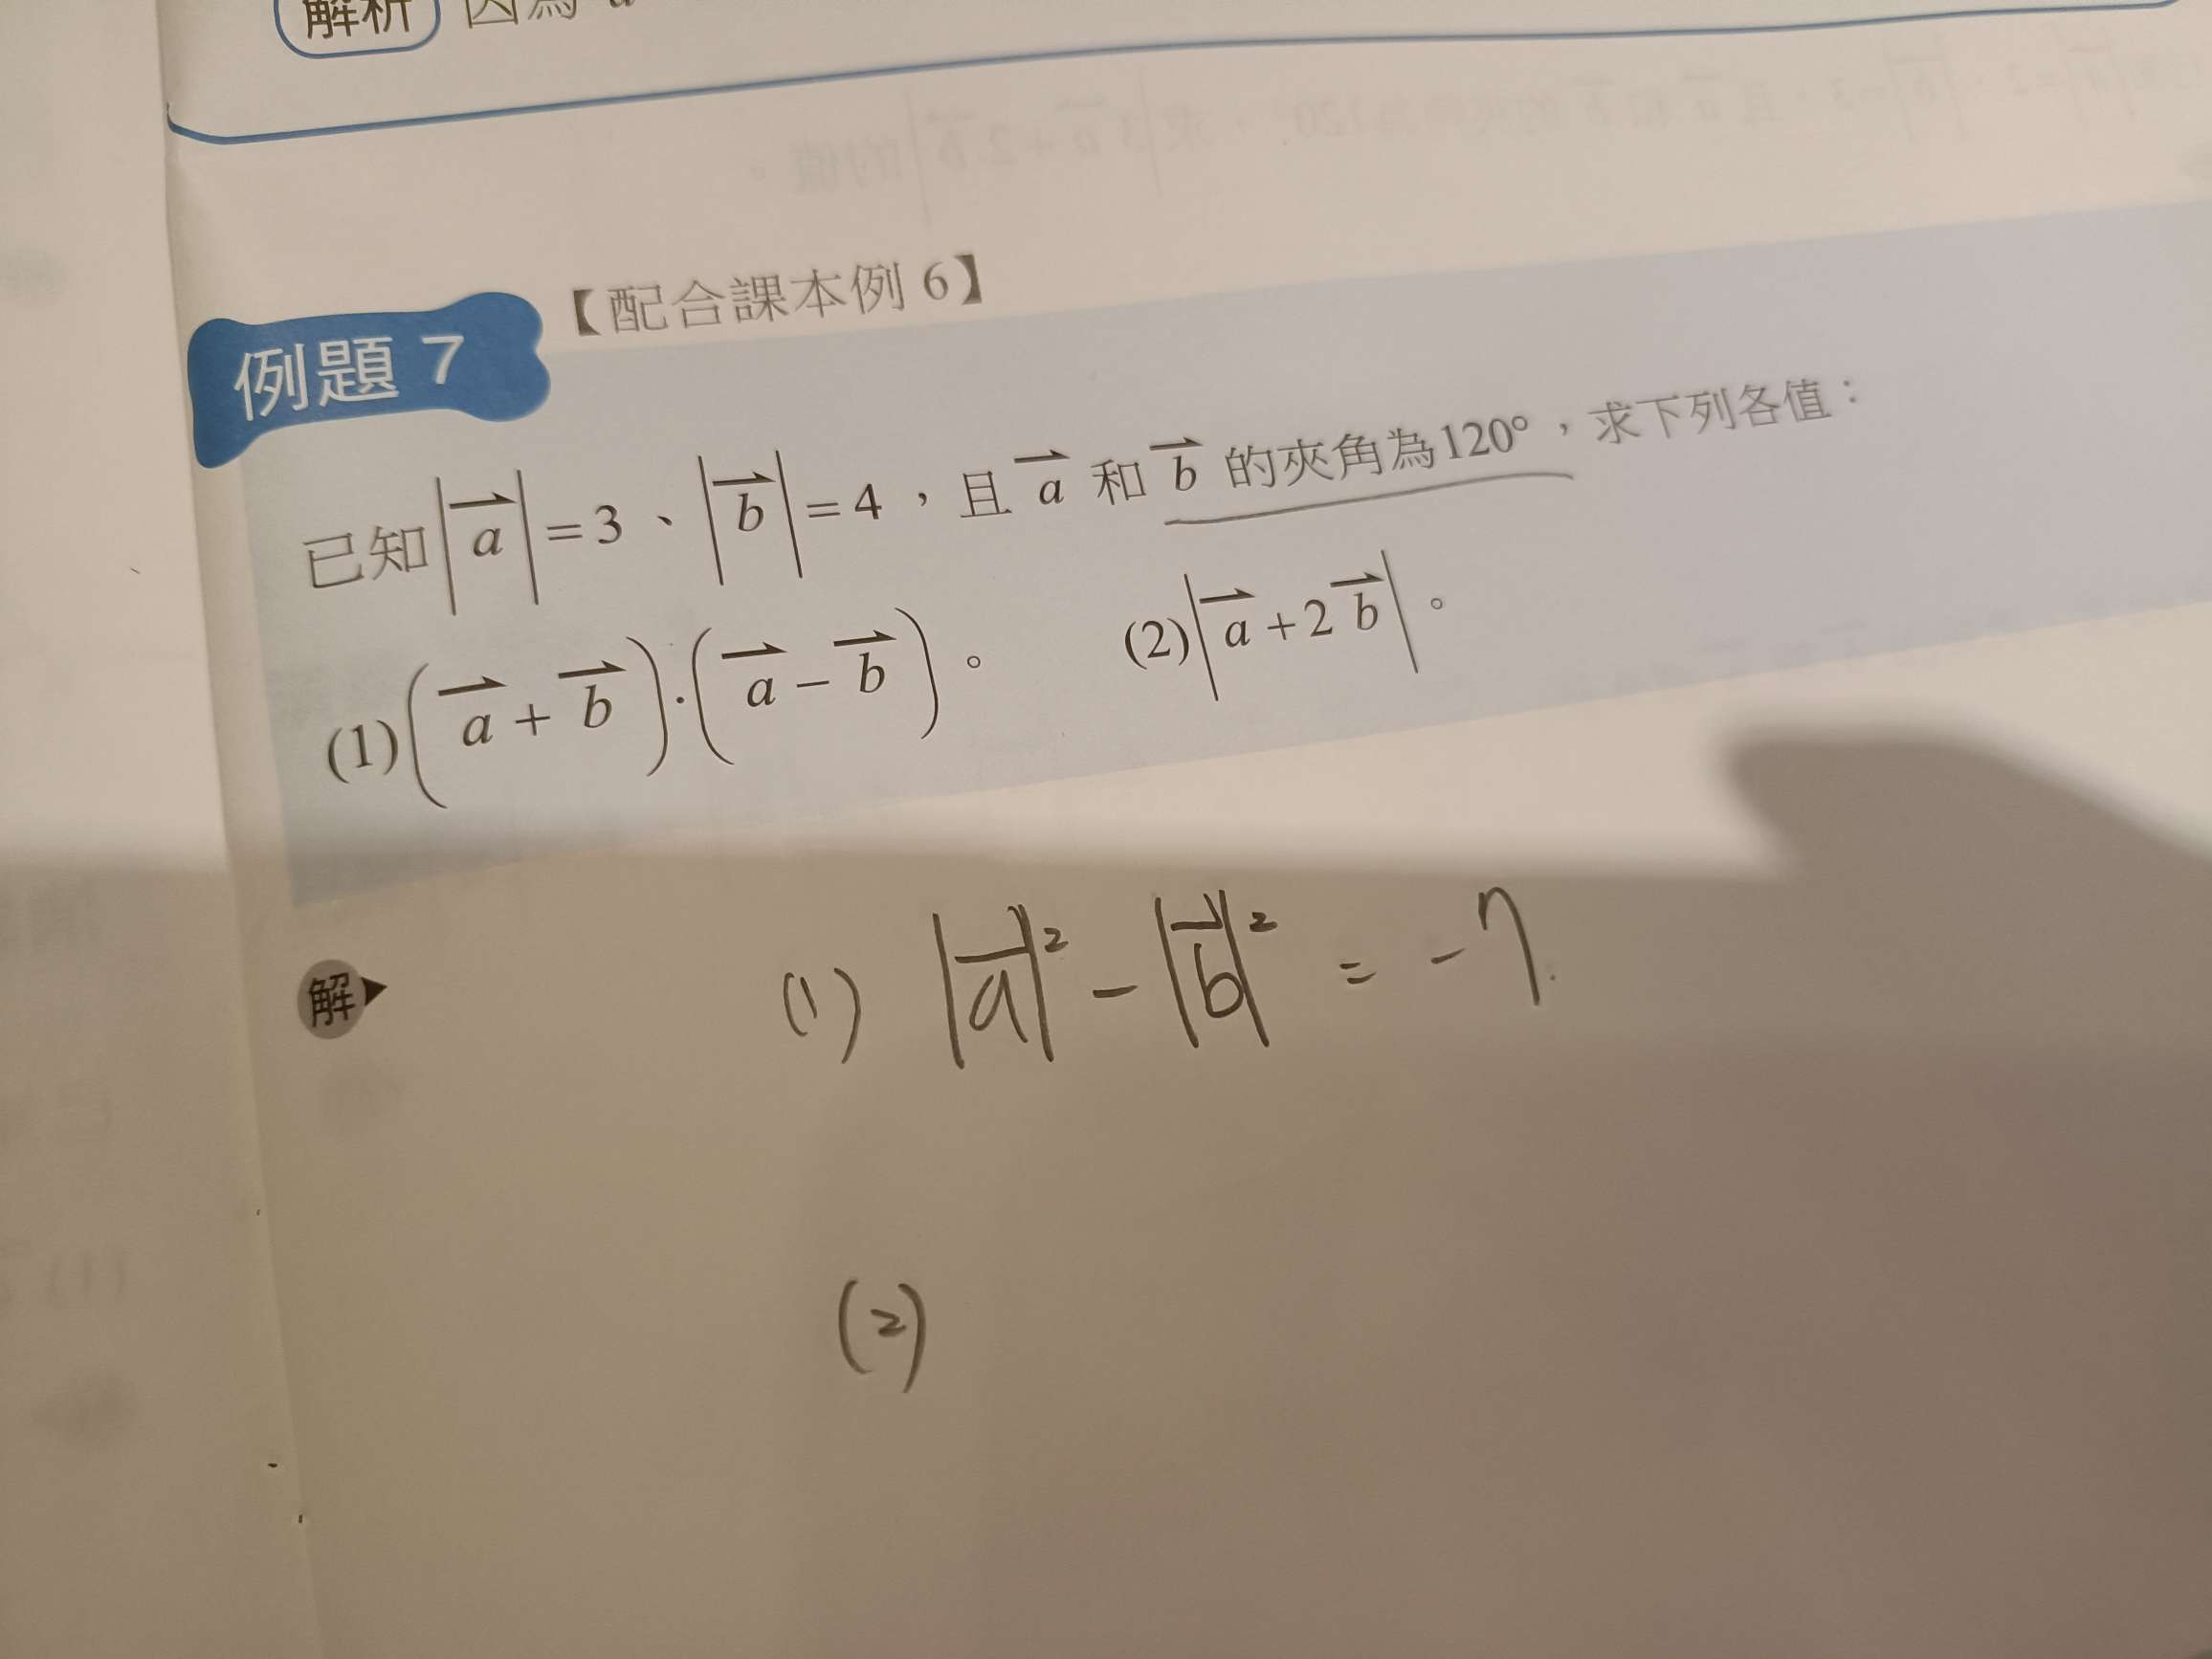 解析 因為
【配合課本例 6】
例題 7
已知|a⃗|=3、|b⃗|=4，且 a⃗ 和 b⃗ 的夾角為120°，求下列各值：
(1)(a⃗+b⃗)·(a⃗−b⃗)。 (2)|a⃗+2b⃗|。
解
(1) |a⃗|²−|b⃗|² = −7.
(2)